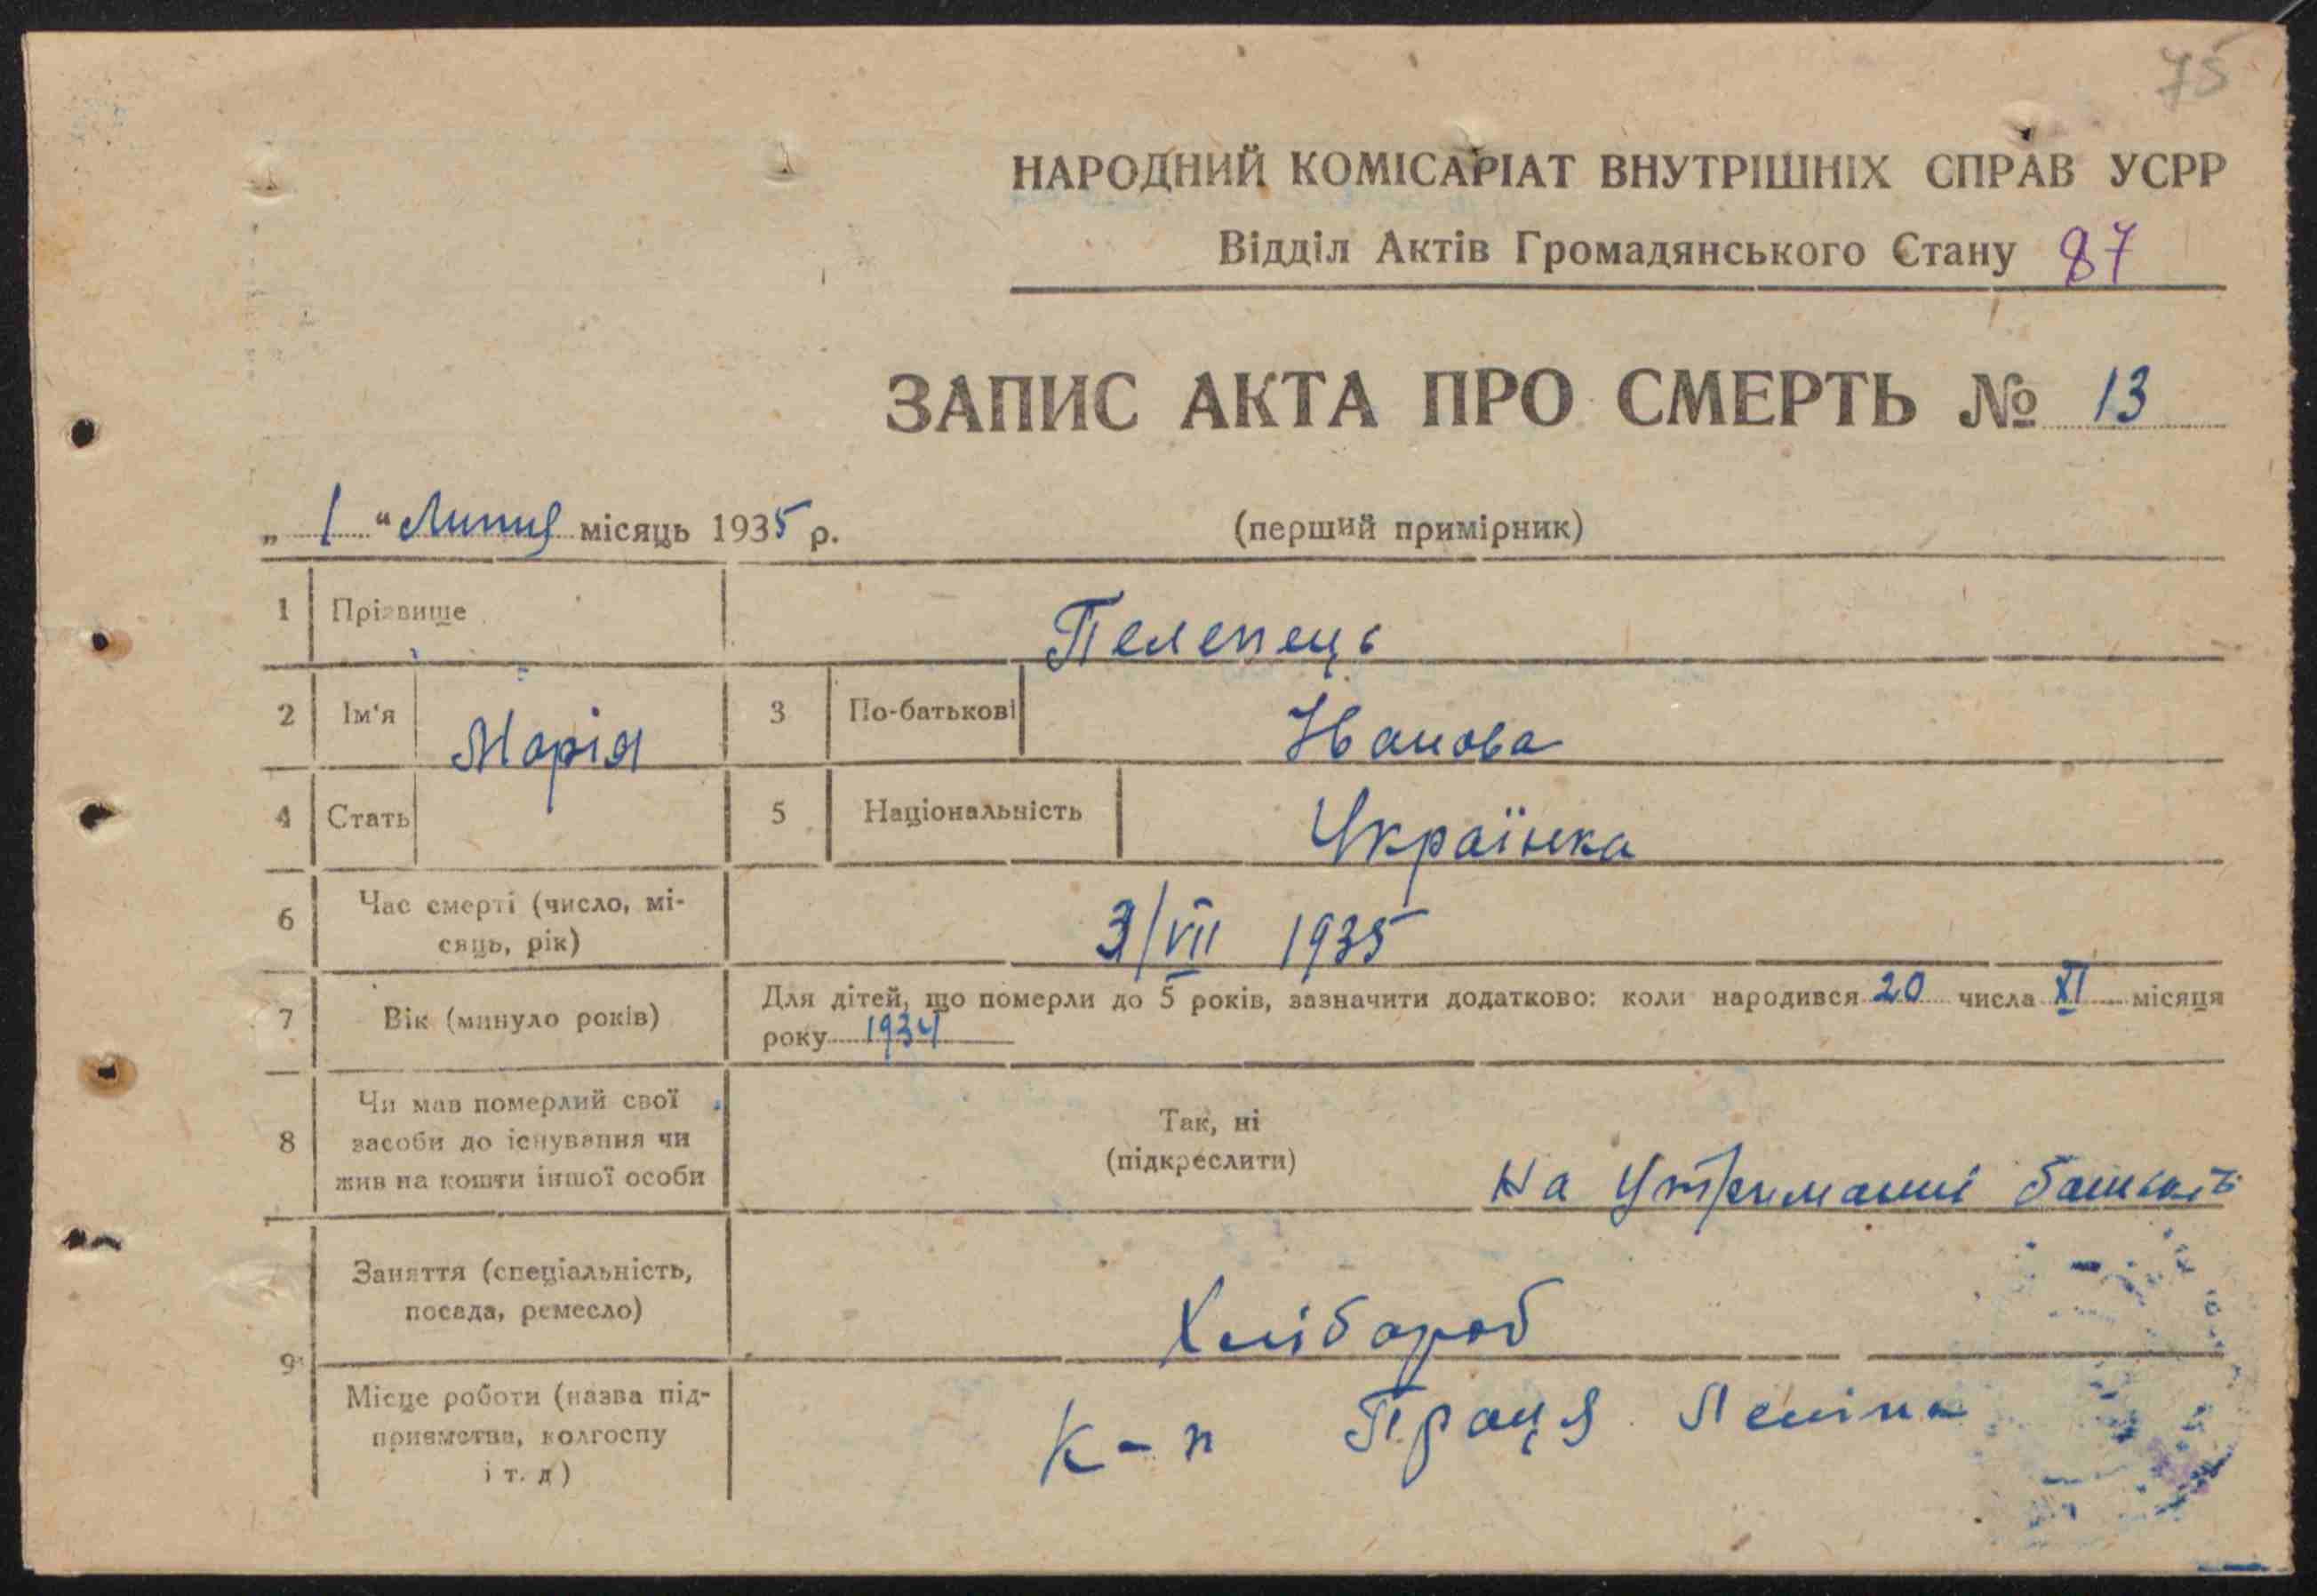 75
НАРОДНИЙ КОМІСАРІАТ ВНУТРІШНІХ СПРАВ УСРР
Відділ Актів Громадянського Стану 87
ЗАПИС АКТА ПРО СМЕРТЬ № 13
„ 1 “ Липня місяць 1935 р. (перший примірник)
1 Прізвище Пелепець
2 Ім'я Марія 3 По-батькові Іванова
4 Стать 5 Національність Українка
6 Час смерті (число, мі-
сяць, рік) 3/VII 1935
7 Вік (минуло років) Для дітей, що померли до 5 років, зазначити додатково: коли народився 20 числа XI місяця
року 1934
8 Чи мав померлий свої
засоби до існування чи
жив на кошти іншої особи
Так, ні
(підкреслити)
На Утриманні батьків
9 Заняття (спеціальність,
посада, ремесло) Хлібороб
Місце роботи (назва під-
приємства, колгоспу
і т. д)
К-п Праця Леніна